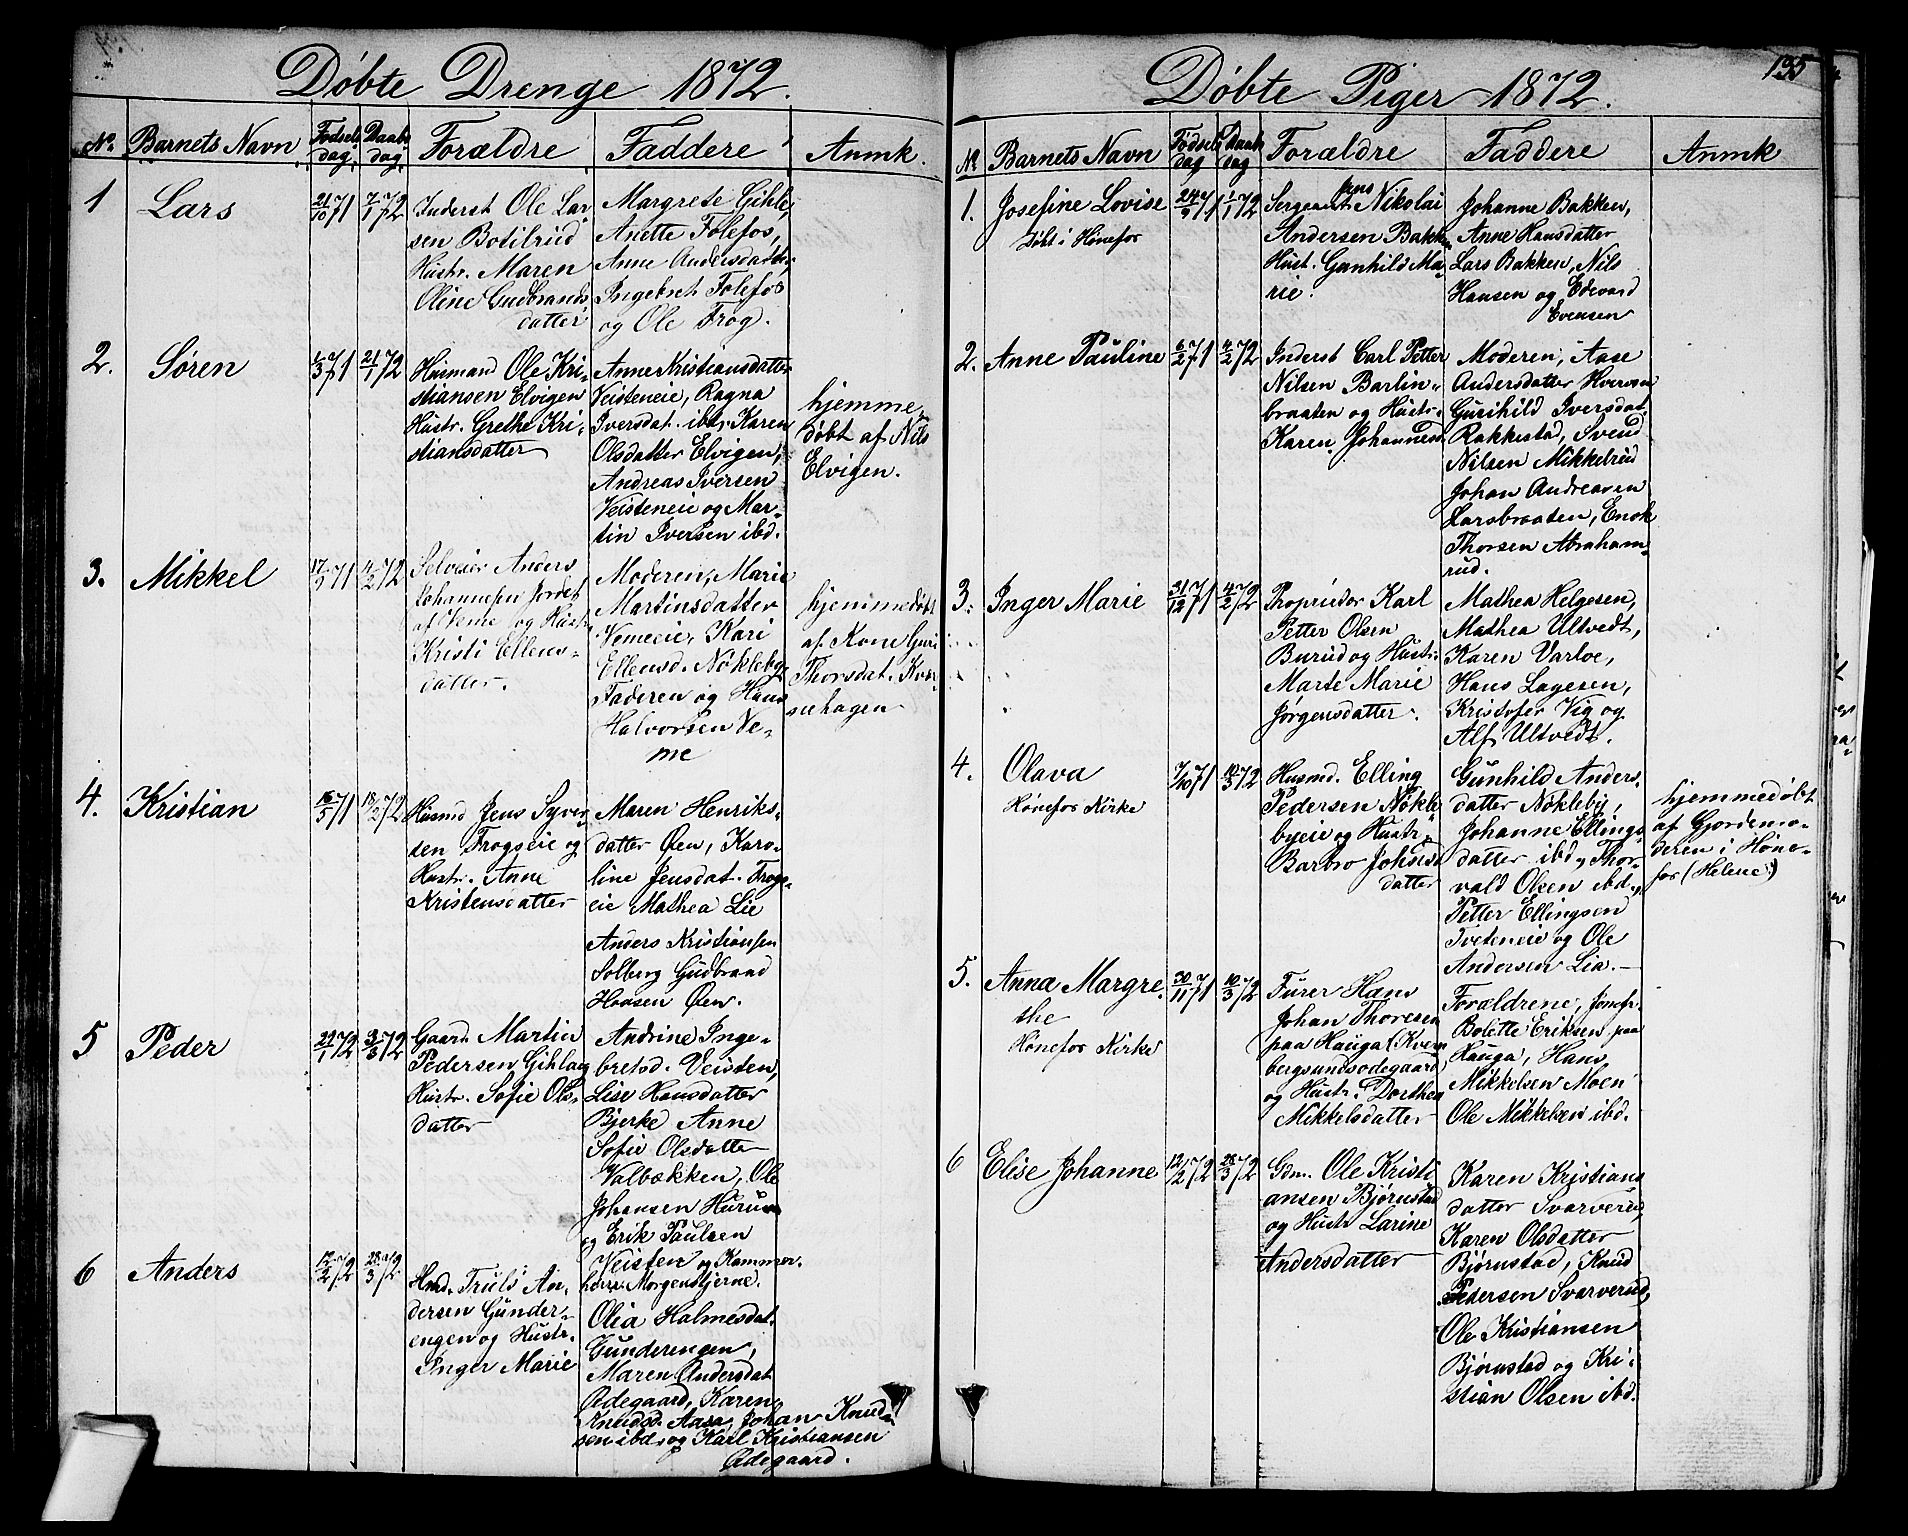 Døbte Drenge 1872.
No. Barnets Navn Fødsels dag. Daabs dag. Forældre Faddere Anmk.
1 Lars 21/10 71 7/1 72
Inderst Ole Lar
sen Botilrud
Hustr. Maren
Oline Gudbrands
datter
Margrete Gihle,
Anette Folefos,
Anne Andersdatter,
Ingebret Folefos
og Ole Frog.
2. Søren 1/3 71 21/1 72
Husmand Ole Kri-
stiansen Elvigen
Hustr. Grethe Kri-
stiansdatter
Anne Kristiansdatter
Veisteneie, Ragna
Iversdat. ibd, Karen
Olsdatter Elvigen,
Andreas Iversen
Veisteneie og Mar-
tin Iversen ibd.
hjemme
døbt af Nils
Elvigen.
3. Mikkel 17/9 71 4/2 72
Selveier Anders
Johannesen Jordet
af Veme og Hustr.
Kristi Ellens-
datter.
Moderen, Marie
Martinsdatter
Vemeeie, Kari
Ellensd. Nøkleby
Faderen og Hans
Halvorsen Ve-
me
hjemmedøbt
af Kone Guri
Thorsdat. Kor-
snehagen
4. Kristian 16/5 71 18/2 72
Husmd Jens Syver
sen Frogseie og
Hustr. Anne
Kristensdatter
Maren Henriks-
datter Øen, Karo-
line Jensdat. Frogs-
eie Mathea Lie
Anders Kristiansen
Solberg Gudbrand
Hansen Øen.
5 Peder 29/1 72 3/3 72
Gaard. Martin
Pedersen Gihle og
Hustr. Sofie Ols-
datter
Andrine Inge-
bretsd. Veisten,
Lise Hansdatter
Bjerke Anne
Sofie Olsdatter
Valbækken, Ole
Johansen Hurum
og Erik Paulsen
Veisten og Kammer-
herre Morgenstjerne.
6 Anders 12/2 72 28/3 72
Hmd. Truls An-
dersen Gunder-
engen og Hustr.
Inger Marie
Olia Holmesdat.
Gunderengen,
Maren Andersdat
Ødegaard, Karen
Knudsd. Aasa, Johan Knud-
sen ibd, og Karl Kristiansen
Ødegaard.
195
Døbte Piger 1872.
No. Barnets Navn Fødsels dag Daabs dag Forældre Faddere Anmk
1. Josefine Lovise 24/9 71 1/1 72
Døbt i Hønefos
Sergeant Jens Nikolai
Andersen Bakken
Hust. Gunhild Ma-
rie.
Johanne Bakken,
Anne Hansdatter
Lars Bakken, Nils
Hansen og Edevard
Evensen
2. Anne Pauline 6/2 71 4/2 72
Inderst Carl Petter
Nilsen Barlin-
braaten og Hustr.
Karen Johannesd
Moderen, Aase
Andersdatter Hverven
Gurihild Iversdat
Rakkestad, Svend
Nilsen Mikkelrud
Johan Andreasen
Larsbraaten, Enok
Thorsen Abraham-
rud.
3. Inger Marie 31/12 71 4/2 72
Proprietør Karl
Petter Olsen
Burud og Hustr.
Marte Marie
Jørgensdatter.
Mathea Helgesen,
Mathea Ultvedt,
Karen Varloe,
Hans Lagesen,
Kristofer Vig og
Alf Ultvedt.
4. Olava 7/10 71 10/3 72
Hønefos Kirke
Husmd. Elling
Pedersen Nøkle
byeie og Hustr.
Barbro Johns
datter
Gunhild Anders-
datter Nøkleby,
Johanne Ellings
datter ibd, Thor-
vald Olsen ibd.,
Petter Ellingsen
Tveteneie og Ole
Andersen Lia.
hjemmedøbt
af Gjordemo-
deren i Høne-
fos (Helene)
5. Anna Margre-
the
Hønefos Kirke
30/11 71 10/3 72
Furer Hans
Johan Thoresen
paa Hauga (Kvern
bergsundsødegaard)
og Hustr. Dorthea
Mikkelsdatter
Forældrene, Jomfr.
Bolette Eriksen paa
Hauga, Hans
Mikkelsen Moen
Ole Mikkelsen ibd.
6 Elise Johanne 12/2 72 28/3 72
Gdm. Ole Kristi
ansen Bjørnstad
og Hustr Larine
Andersdatter
Karen Kristians
datter Svarverud,
Karen Olsdatter
Bjørnstad, Knud
Pedersen Svarverud,
Ole Kristiansen
Bjørnstad og Kri-
stian Olsen ibd.